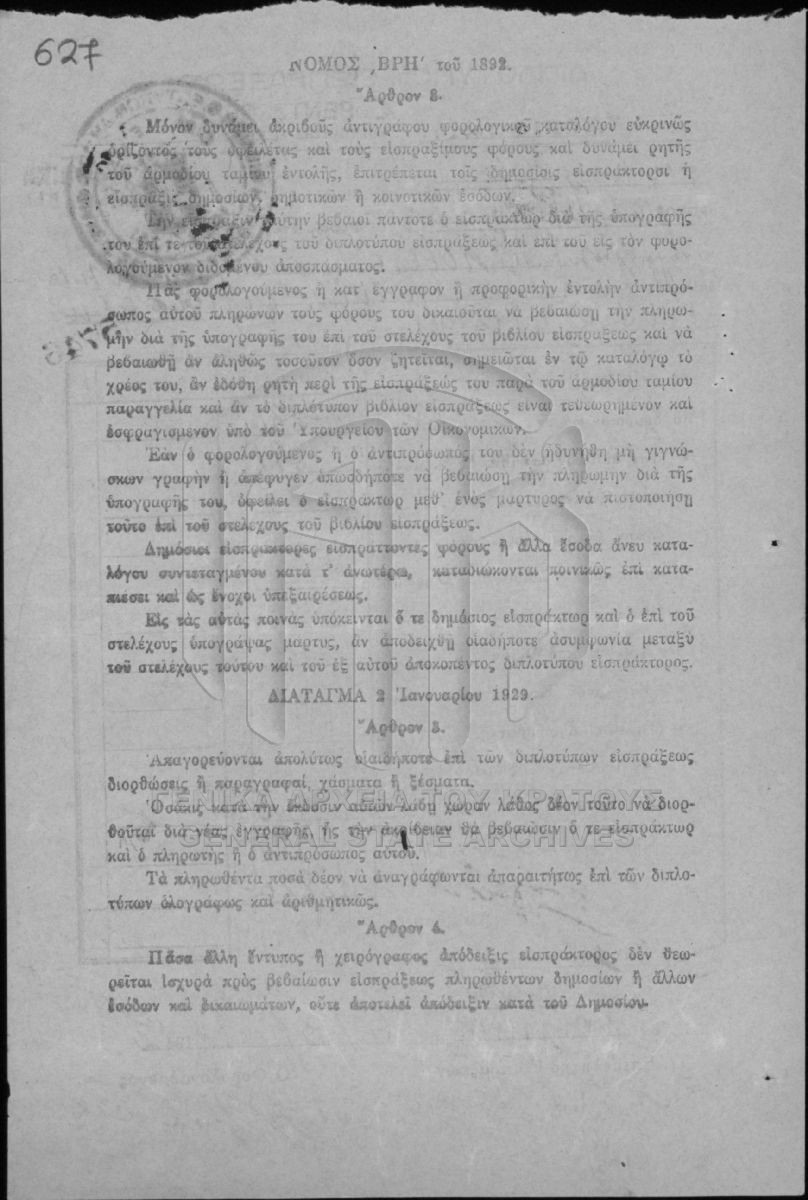 627
ΝΟΜΟΣ ͵ΒΡΗʹ τοῦ 1892.
Ἄρθρον 8.
Μόνον δυνάμει ἀκριβοῦς ἀντιγράφου φορολογικοῦ καταλόγου εὐκρινῶς
ὁρίζοντος τοὺς ὀφειλέτας καὶ τοὺς εἰσπραξίμους φόρους καὶ δυνάμει ρητῆς
τοῦ ἁρμοδίου ταμίου ἐντολῆς, ἐπιτρέπεται τοῖς δημοσίοις εἰσπράκτορσι ἡ
εἴσπραξις δημοσίων, δημοτικῶν ἢ κοινοτικῶν ἐσόδων.
Τὴν εἴσπραξιν ταύτην βεβαιοῖ πάντοτε ὁ εἰσπράκτωρ διὰ τῆς ὑπογραφῆς
του ἐπί τε τοῦ στελέχους τοῦ διπλοτύπου εἰσπράξεως καὶ ἐπὶ τοῦ εἰς τὸν φορο-
λογούμενον διδομένου ἀποσπάσματος.
Πᾶς φορολογούμενος ἢ κατ' ἔγγραφον ἢ προφορικὴν ἐντολὴν ἀντιπρό-
σωπος αὐτοῦ πληρώνων τοὺς φόρους του δικαιοῦται νὰ βεβαιώσῃ τὴν πληρω-
μὴν διὰ τῆς ὑπογραφῆς του ἐπὶ τοῦ στελέχους τοῦ βιβλίου εἰσπράξεως καὶ νὰ
βεβαιωθῇ ἂν ἀληθῶς τοσοῦτον ὅσον ζητεῖται, σημειῶται ἐν τῷ καταλόγῳ τὸ
χρέος του, ἂν ἐδόθη ρητὴ περὶ τῆς εἰσπράξεώς του παρὰ τοῦ ἁρμοδίου ταμίου
παραγγελία καὶ ἂν τὸ διπλότυπον βιβλίον εἰσπράξεως εἶναι τεθεωρημένον καὶ
ἐσφραγισμένον ὑπὸ τοῦ Ὑπουργείου τῶν Οἰκονομικῶν.
Ἐὰν ὁ φορολογούμενος ἢ ὁ ἀντιπρόσωπός του δὲν ἠδυνήθη μὴ γιγνώ-
σκων γραφὴν ἢ ἀπέφυγεν ὁπωσδήποτε νὰ βεβαιώσῃ τὴν πληρωμὴν διὰ τῆς
ὑπογραφῆς του, ὀφείλει ὁ εἰσπράκτωρ μεθ' ἑνὸς μάρτυρος νὰ πιστοποιήσῃ
τοῦτο ἐπὶ τοῦ στελέχους τοῦ βιβλίου εἰσπράξεως.
Δημόσιοι εἰσπράκτορες εἰσπράττοντες φόρους ἢ ἄλλα ἔσοδα ἄνευ κατα-
λόγου συντεταγμένου κατὰ τ' ἀνωτέρω, καταδιώκονται ποινικῶς ἐπὶ κατα-
πιέσει καὶ ὡς ἔνοχοι ὑπεξαιρέσεως.
Εἰς τὰς αὐτὰς ποινὰς ὑπόκεινται ὅ τε δημόσιος εἰσπράκτωρ καὶ ὁ ἐπὶ τοῦ
στελέχους ὑπογράψας μάρτυς, ἂν ἀποδειχθῇ οἱαδήποτε ἀσυμφωνία μεταξὺ
τοῦ στελέχους τούτου καὶ τοῦ ἐξ αὐτοῦ ἀποκοπέντος διπλοτύπου εἰσπράκτορος.
ΔΙΑΤΑΓΜΑ 2 Ἰανουαρίου 1929.
Ἄρθρον 3.
Ἀπαγορεύονται ἀπολύτως οἱαιδήποτε ἐπὶ τῶν διπλοτύπων εἰσπράξεως
διορθώσεις ἢ παραγραφαί, χάσματα ἢ ξέσματα.
ΓΕΝΙΚΑ ΑΡΧΕΙΑ ΤΟΥ ΚΡΑΤΟΥΣ
Ὁσάκις κατὰ τὴν ἔκδοσιν αὐτῶν λάβῃ χώραν λάθος δέον τοῦτο νὰ διορ-
θοῦται διὰ νέας ἐγγραφῆς, ἧς τὴν ἀκρίβειαν θὰ βεβαιῶσιν ὅ τε εἰσπράκτωρ
GENERAL STATE ARCHIVES
καὶ ὁ πληρωτὴς ἢ ὁ ἀντιπρόσωπος αὐτοῦ.
Τὰ πληρωθέντα ποσὰ δέον νὰ ἀναγράφωνται ἀπαραιτήτως ἐπὶ τῶν διπλο-
τύπων ὁλογράφως καὶ ἀριθμητικῶς.
Ἄρθρον 4.
Πᾶσα ἄλλη ἔντυπος ἢ χειρόγραφος ἀπόδειξις εἰσπράκτορος δὲν θεω-
ρεῖται ἰσχυρὰ πρὸς βεβαίωσιν εἰσπράξεως πληρωθέντων δημοσίων ἢ ἄλλων
ἐσόδων καὶ δικαιωμάτων, οὔτε ἀποτελεῖ ἀπόδειξιν κατὰ τοῦ Δημοσίου.